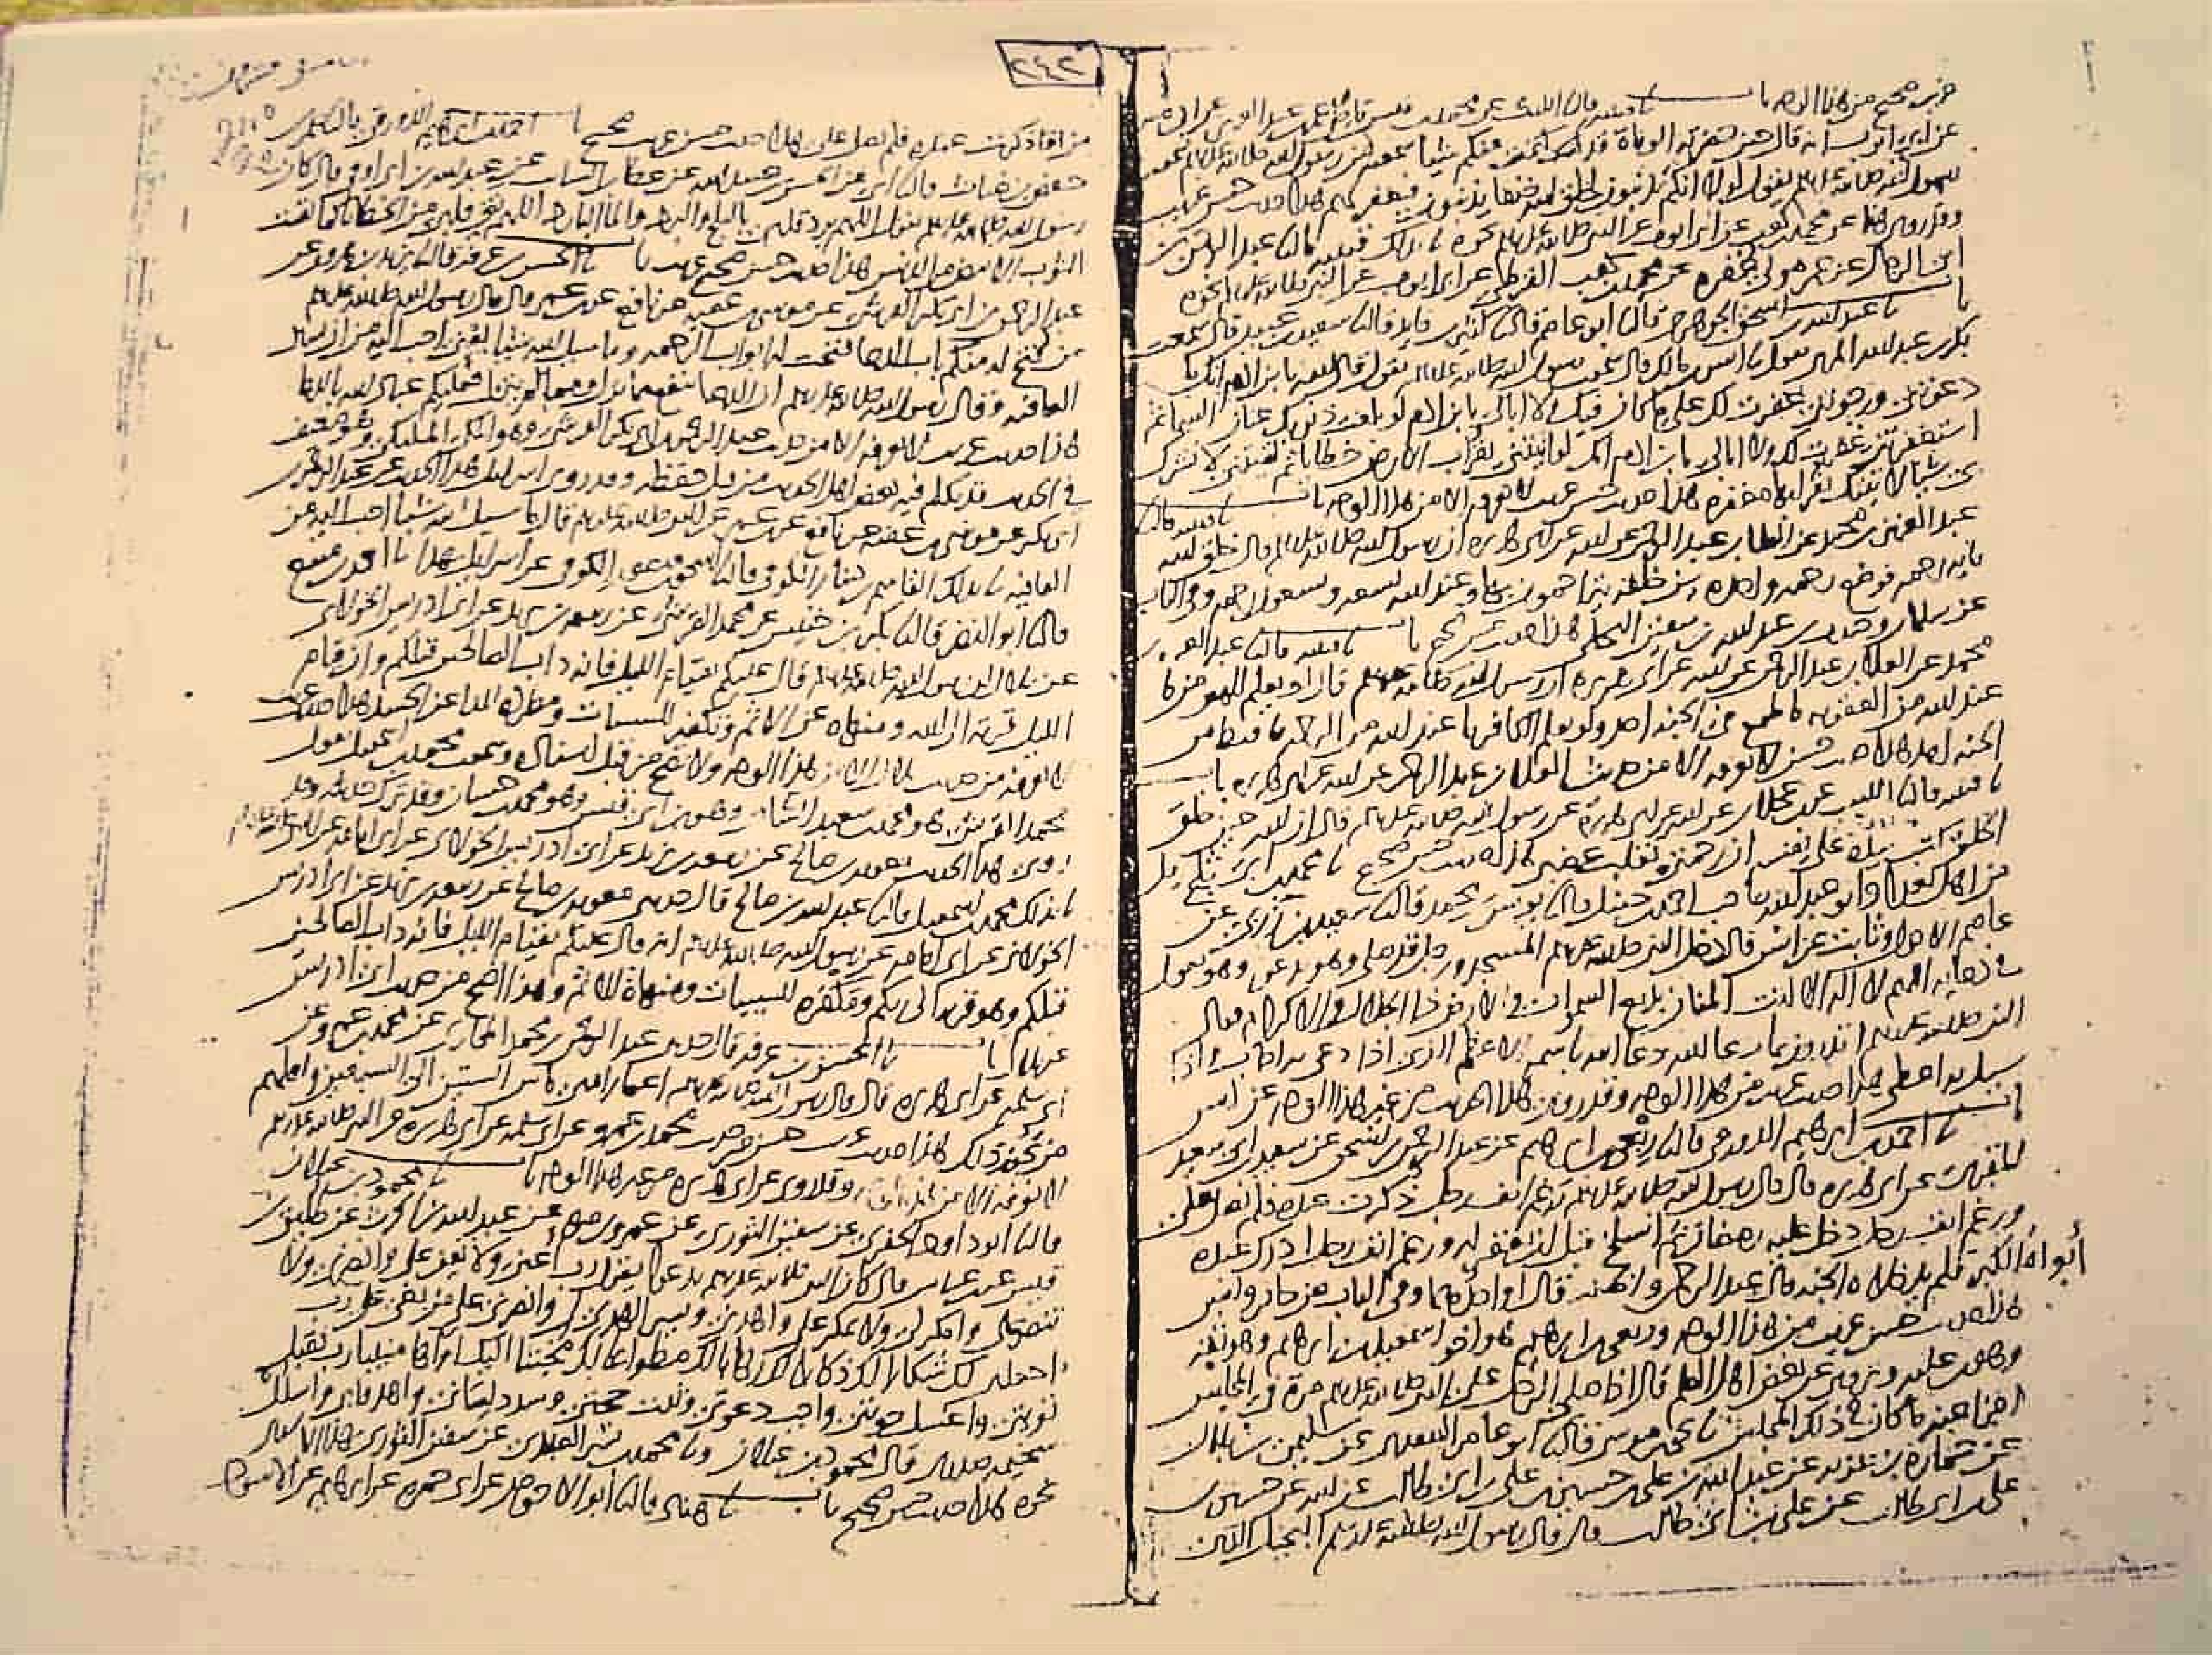 عن ابي ايوب انه قال حين حضرته الوفاة قد كنت كتمت عنكم شيئا سمعته من رسول الله صلى الله عليه وسلم سمعت
رسول الله صلى الله عليه وسلم يقول لولا انكم تذنبون لخلق الله خلقا يذنبون فيغفر لهم هذا حديث حسن غريب
وقد روي هذا عن محمد بن كعب عن ابي ايوب عن النبي صلى الله عليه وسلم نحوه نا بذلك قتيبه قال نا عبد الرحمن
ابن ابي الرجال عن عمر مولى غفره عن محمد بن كعب القرظي عن ابي ايوب عن النبي صلى الله عليه وسلم نحوه
نا عبد الله بن اسحق الجوهري قال نا ابو عاصم قال نا كثير بن فايد قال نا سعيد بن عبيد قال سمعت
بكر بن عبد الله المزني يقول نا انس بن مالك قال سمعت رسول الله صلى الله عليه وسلم يقول قال الله يا بن ادم انك ما
دعوتني ورجوتني غفرت لك على ما كان فيك ولا ابالي يا بن ادم لو بلغت ذنوبك عنان السما ثم
استغفرتني غفرت لك ولا ابالي يا بن ادم انك لو اتيتني بقراب الارض خطايا ثم لقيتني لا تشرك
بي شيا لاتيتك بقرابها مغفره هذا حديث حسن غريب لا نعرفه الا من هذا الوجه باب نا قتيبه قال نا
عبد العزيز بن محمد عن العلا بن عبد الرحمن عن ابيه عن ابي هريره ان رسول الله صلى الله عليه وسلم قال خلق الله
مايه رحمه فوضع رحمه واحده بين خلقه يتراحمون بها وعند الله تسعه وتسعون رحمه وفي الباب
عن سلمان وجندب بن عبد الله بن سفين البجلي هذا حديث حسن صحيح با نا قتيبه قال نا عبد العزيز بن
محمد عن العلا بن عبد الرحمن عن ابيه عن ابي هريره ان رسول الله صلى الله عليه وسلم قال لو يعلم المومن ما
عند الله من العقوبه ما طمع في الجنه احد ولو يعلم الكافر ما عند الله من الرحمه ما قنط من
الجنه احد هذا حديث حسن لا نعرفه الا من حديث العلا بن عبد الرحمن عن ابيه عن ابي هريره با
نا قتيبه قال نا الليث عن بن عجلان عن ابيه عن ابي هريرة عن رسول الله صلى الله عليه وسلم قال ان الله حين خلق
الخلق كتب بيده على نفسه ان رحمتي تغلب غضبي هذا حديث حسن صحيح نا محمد بن ابي ثلج رجل
من اهل بغداد ابو عبد الله صاحب احمد بن حنبل قال نا يونس بن محمد قال نا سعيد بن زربي عن
عاصم الاحول وثابت عن انس قال دخل النبي صلى الله عليه وسلم المسجد ورجل قد صلى وهو يدعو وهو يقول
في دعايه اللهم لا اله الا انت المنان بديع السموات والارض ذا الجلال والاكرام فقال
النبي صلى الله عليه وسلم اتدرون بما دعا الله دعا الله باسمه الاعظم الذي اذا دعي به اجاب واذا
سيل به اعطى هذا حديث غريب من هذا الوجه وقد روي هذا الحديث من غير هذا الوجه عن انس
با نا احمد بن ابرهيم الدورقي قال نا ربعي بن ابرهيم عن عبد الرحمن بن اسحق عن سعيد بن ابي سعيد
المقبري عن ابي هريره قال قال رسول الله صلى الله عليه وسلم رغم انف رجل ذكرت عنده فلم يصل علي
ورغم انف رجل دخل عليه رمضان ثم انسلخ قبل ان يغفر له ورغم انف رجل ادرك عنده
أبواه الكبر فلم يدخلاه الجنه قال عبد الرحمن واظنه قال او احدهما وفي الباب عن جابر وانس
هذا حديث حسن غريب من هذا الوجه وربعي بن ابرهيم هو اخو اسمعيل بن ابرهيم وهو ثقه
وهو بن عليه ويروى عن بعض اهل العلم قال اذا صلى الرجل على النبي صلى الله عليه وسلم مرة في المجلس
اجزا عنه ما كان في ذلك المجلس نا يحيى بن موسى قال نا ابو عامر العقدي عن سليمن بن بلال
عن عماره بن غزيه عن عبد الله بن علي بن حسين بن علي بن ابي طالب عن ابيه عن حسين بن
علي بن ابي طالب عن علي بن ابي طالب قال قال رسول الله صلى الله عليه وسلم البخيل الذي
٢٤٢
من اذا ذكرت عنده فلم يصل علي هذا حديث حسن غريب صحيح با احمد بن ابرهيم الدورقي
حفص بن غياث قال نا ابي عن الحسن بن عبيد الله عن عطا بن السايب عن عبد الله بن ابي اوفى قال كان
رسول الله صلى الله عليه وسلم يقول اللهم برد قلبي بالثلج والبرد والما البارد اللهم نق قلبي من الخطايا كما نقيت
الثوب الابيض من الدنس هذا حديث حسن صحيح غريب با نا الحسن بن عرفه قال نا يزيد بن هرون عن
عبد الرحمن بن ابي بكر القرشي عن موسى بن عقبه عن نافع عن بن عمر قال قال رسول الله صلى الله عليه وسلم
من فتح له منكم باب الدعا فتحت له ابواب الرحمه وما سيل الله شيئا يعني احب اليه من ان يسال
العافيه وقال رسول الله صلى الله عليه وسلم ان الدعا ينفع مما نزل ومما لم ينزل فعليكم عباد الله بالدعا
هذا حديث غريب لا نعرفه الا من حديث عبد الرحمن بن ابي بكر القرشي وهو المكي المليكي وهو ضعيف
في الحديث قد تكلم فيه بعض اهل الحديث من قبل حفظه وقد روى اسرايل هذا الحديث عن عبد الرحمن بن
ابي بكر عن موسى بن عقبه عن نافع عن بن عمر عن النبي صلى الله عليه وسلم قال ما سيل الله شيا احب اليه من
العافيه نا بذلك القاسم بن دينار الكوفي قال نا اسحق بن منصور الكوفي عن اسرايل بهذا نا احمد بن منيع
قال نا ابو النضر قال نا بكر بن خنيس عن محمد القرشي عن ربيعه بن يزيد عن ابي ادريس الخولاني
عن بلال ان رسول الله صلى الله عليه وسلم قال عليكم بقيام الليل فانه داب الصالحين قبلكم وان قيام
الليل قربة الى الله ومنهاة عن الاثم وتكفير للسييات ومطرده للدا عن الجسد هذا حديث غريب
لا نعرفه من حديث بلال الا من هذا الوجه ولا يصح من قبل اسناده وسمعت محمد بن اسمعيل يقول
محمد القرشي هو محمد بن سعيد الشامي وهو بن ابي قيس وهو محمد بن حسان وقد ترك حديثه وقد
روى هذا الحديث معويه بن صالح عن ربيعه بن يزيد عن ابي ادريس الخولاني عن ابي امامه عن النبي صلى الله عليه وسلم
نا بذلك محمد بن اسمعيل قال نا عبد الله بن صالح قال حدثني معويه بن صالح عن ربيعه بن يزيد عن ابي ادريس
الخولاني عن ابي امامه عن رسول الله صلى الله عليه وسلم انه قال عليكم بقيام الليل فانه داب الصالحين
قبلكم وهو قربه الى ربكم ومكفره للسييات ومنهاة للاثم وهذا اصح من حديث ابي ادريس
عن بلال با نا الحسن بن عرفه قال حدثني عبد الرحمن بن محمد المحاربي عن محمد بن عمرو عن
ابي سلمه عن ابي هريره قال قال رسول الله صلى الله عليه وسلم اعمار امتي ما بين الستين الى السبعين واقلهم
من يجوز ذلك هذا حديث غريب حسن من حديث محمد بن عمرو عن ابي سلمه عن ابي هريره عن النبي صلى الله عليه وسلم
لا نعرفه الا من هذا الوجه وقد روي عن ابي هريره من غير هذا الوجه با نا محمود بن غيلان
قال نا ابو داود الحفري عن سفين الثوري عن عمرو بن مره عن عبد الله بن الحرث عن طليق بن
قيس عن بن عباس قال كان النبي صلى الله عليه وسلم يدعو يقول رب اعني ولا تعن علي وانصرني ولا
تنصر علي وامكر لي ولا تمكر علي واهدني ويسر الهدى لي وانصرني على من بغى علي رب
اجعلني لك شكارا لك ذكارا لك رهابا لك مطواعا لك مخبتا اليك اواها منيبا رب تقبل
توبتي واغسل حوبتي واجب دعوتي وثبت حجتي وسدد لساني واهد قلبي واسلل
سخيمه صدري قال محمود بن غيلان ونا محمد بن بشر العبدي عن سفين الثوري بهذا الاسناد
نحوه هذا حديث حسن صحيح با نا هناد قال نا ابو الاحوص عن ابي حمزه عن ابرهيم عن الاسود